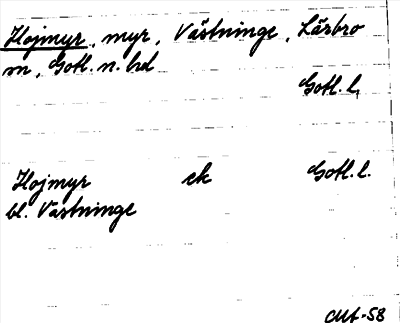 Hojmyr, myr, Västninge, Lärbro
sn, Gotl. n. hd
Gotl. l.
Hojmyr ek Gotl. l.
bl. Västninge